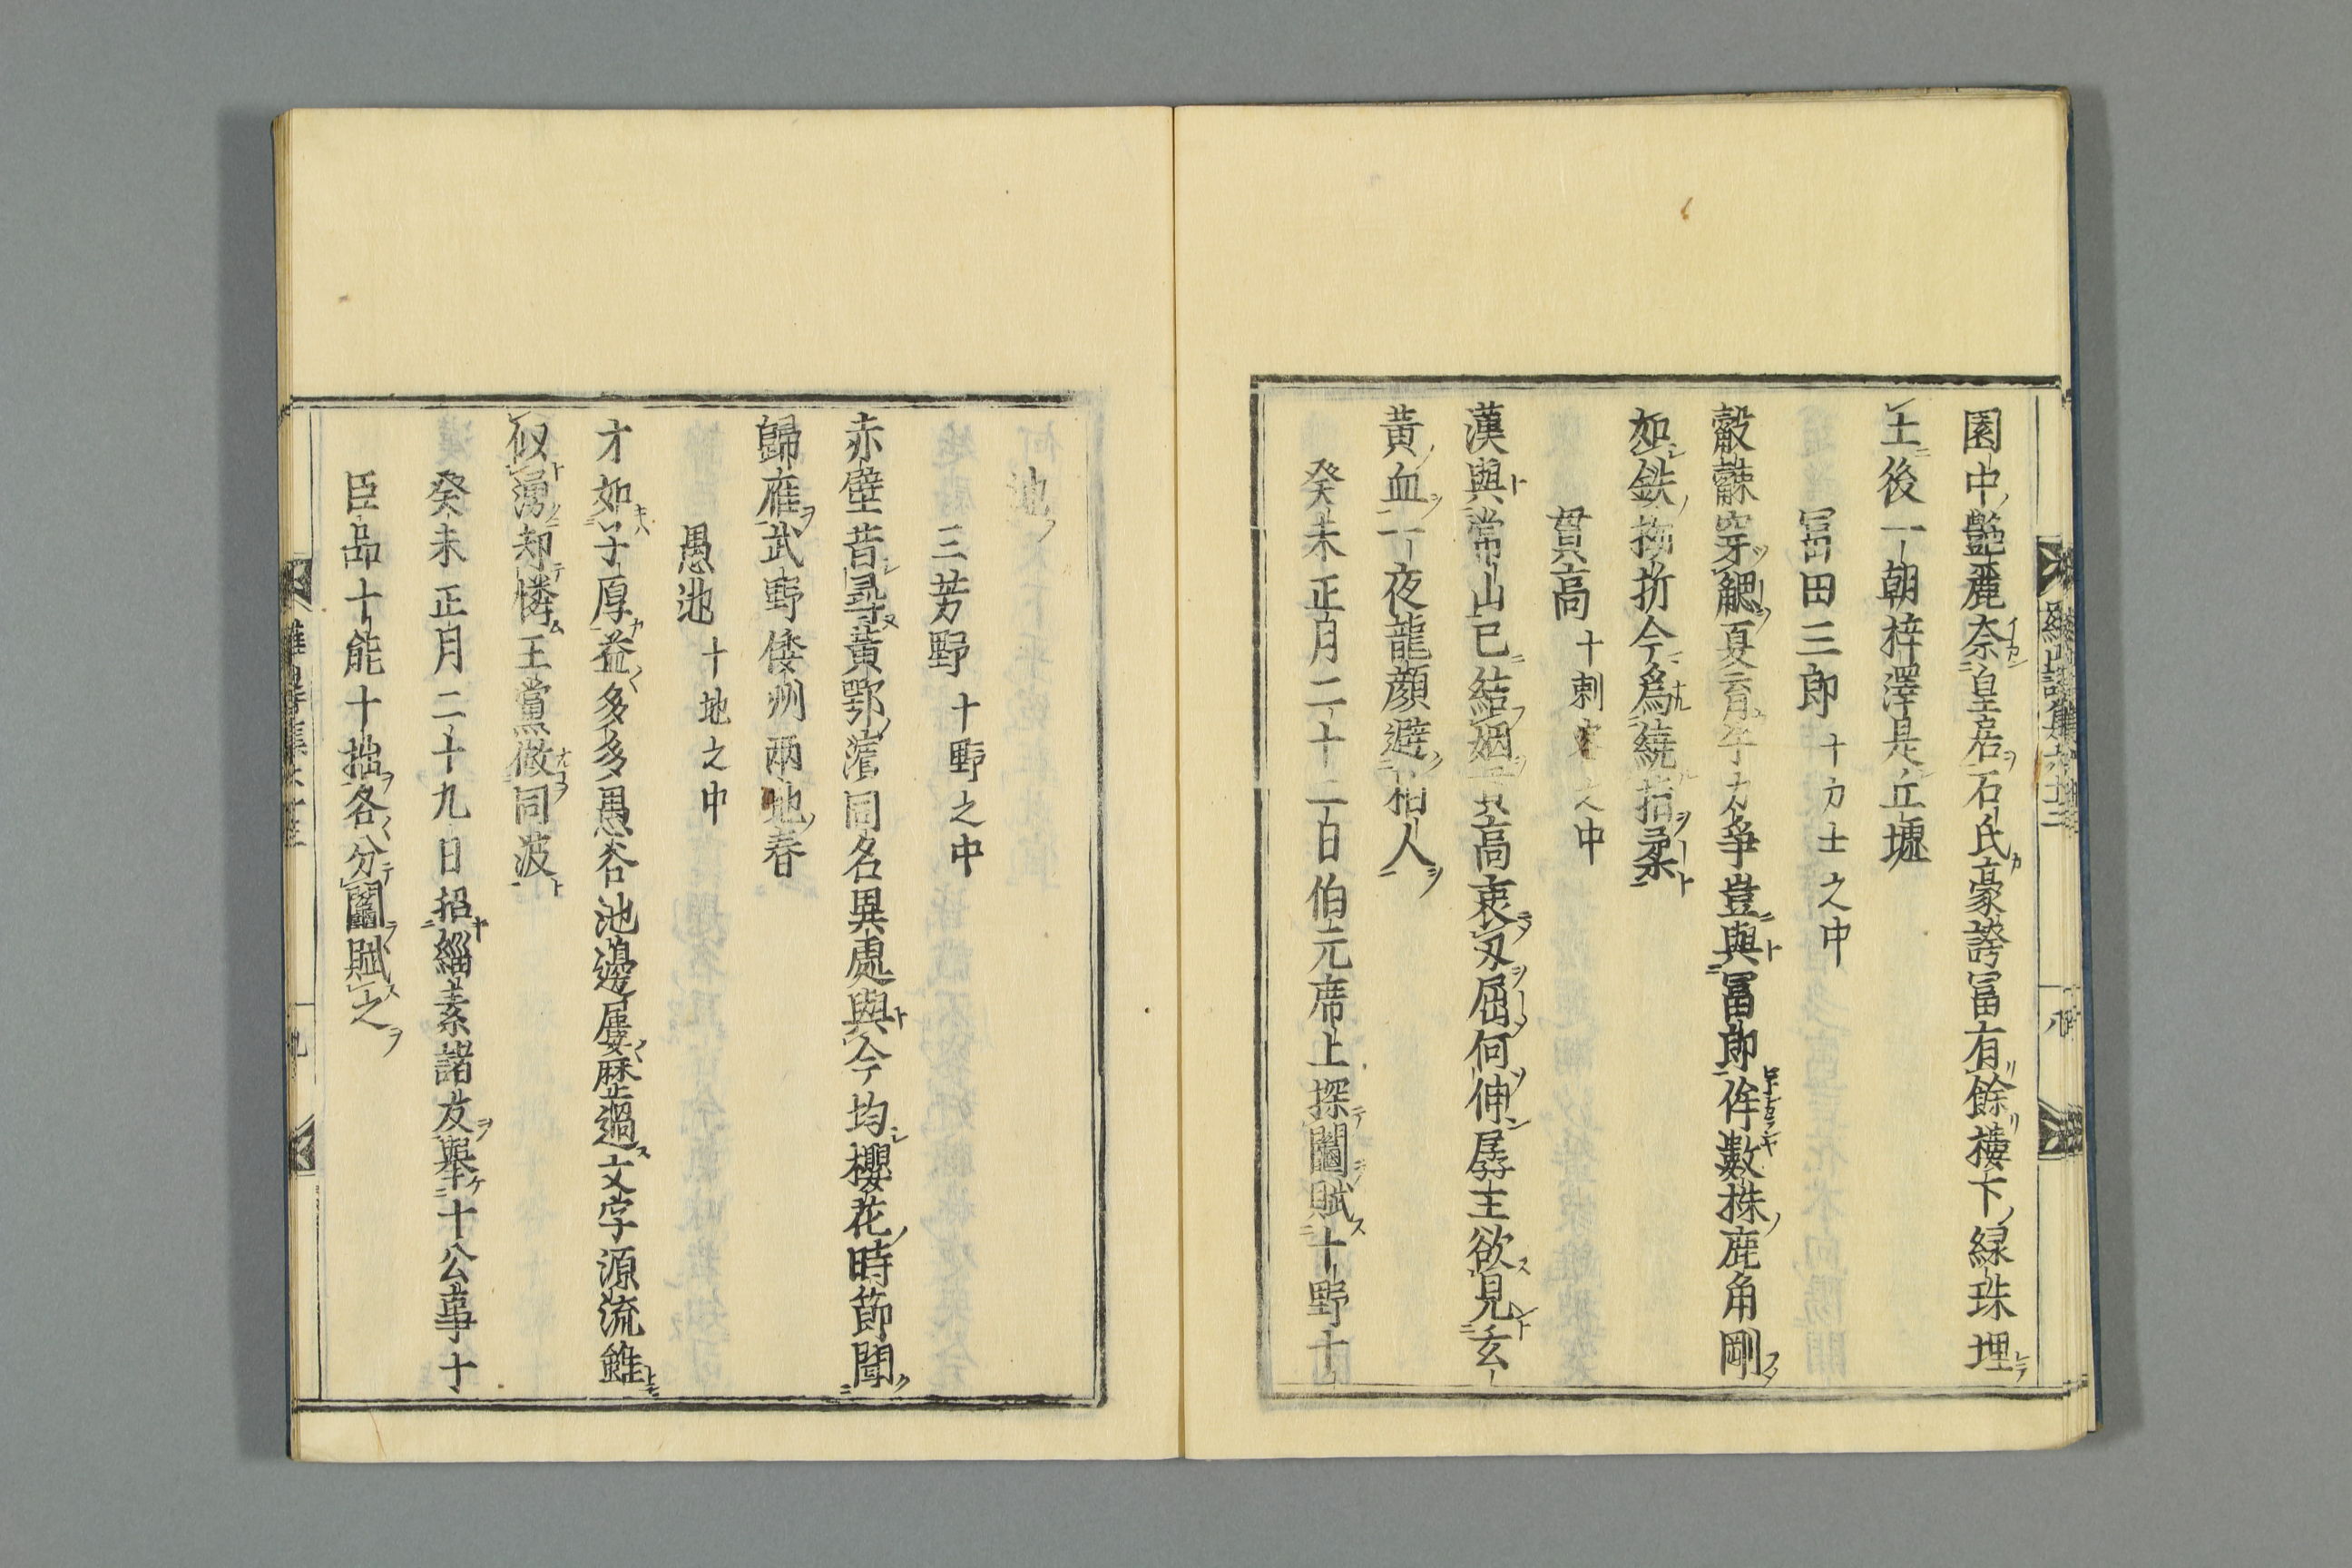 園中艶麗奈皇居石氏豪誇冨有餘樓下緑珠埋
土後一朝梓澤是丘墟
冨田三郎 十力士之中
觳觫穿牙觸夏育 力爭豈與冨郎侔數株鹿角剛
如鉄拗折今爲繞指柔
貫高 十刺客之中
漢與常山已結姻 高衷刄屈何伸孱主欲見玄
黃血一夜龍顔避栢人
癸未正月二十二日伯元席上探鬮賦十野十
地
三芳野 十野之中
赤壁昔尋黃鄂濱同名異處與今均櫻花時節聞
歸雁武野倭州兩地春
愚池 十地之中
才如子厚益多多愚谷池邊屢歷過文字源流雖
似湧却憐王黨做同波
癸未正月二十九日招緇素諸友舉十公事十
臣品十能十拙各分鬮賦之